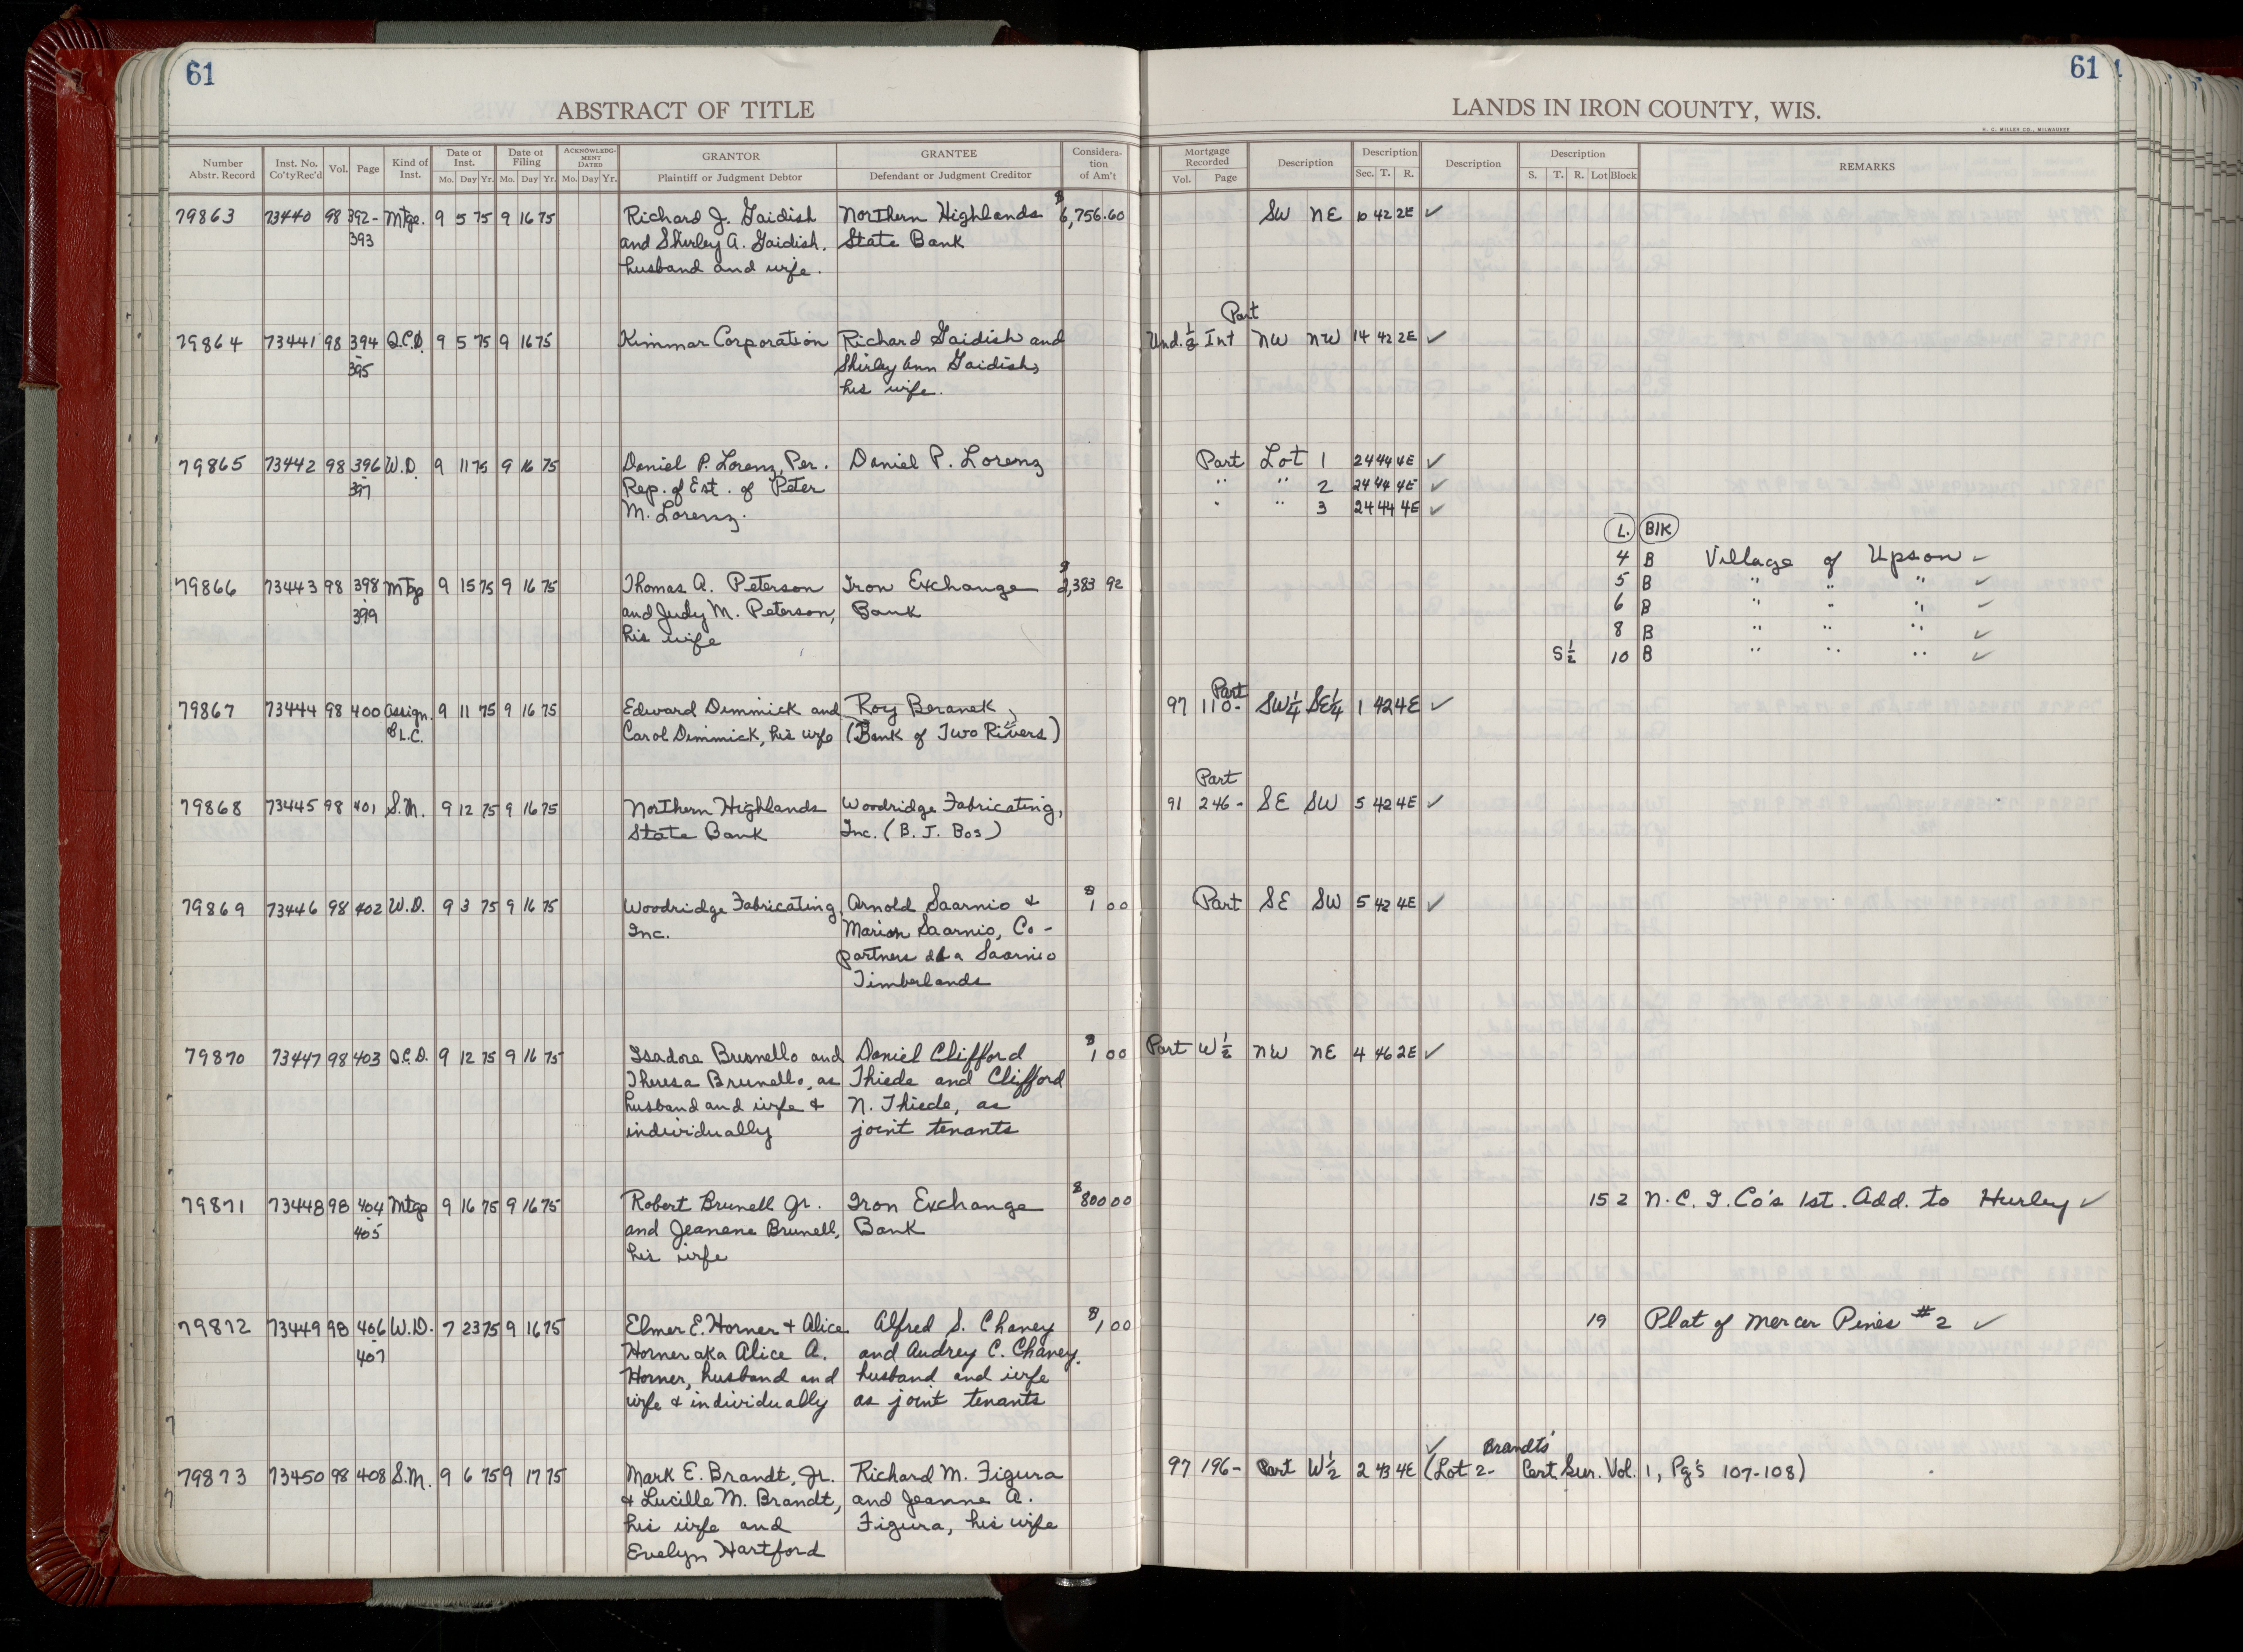 61
61
ABSTRACT OF TITLE
LANDS IN IRON COUNTY, WIS.
H. C. MILLER CO., MILWAUKEE
Number Abstr. Record Inst. No. Co'ty Rec'd Vol. Page Kind of Inst. Date of Inst. Mo. Day Yr. Date of Filing Mo. Day Yr. ACKNOWLEDGMENT DATED Mo. Day Yr. GRANTOR Plaintiff or Judgment Debtor GRANTEE Defendant or Judgment Creditor Consideration of Am't
Mortgage Recorded Vol. Page Description Description Sec. T. R. Description Description S. T. R. Lot Block REMARKS
79863 73440 98 392- Mtge. 9 5 75 9 16 75 Richard J. Gaidish Northern Highlands $6,756.60 SW NE 10 42 2E ✓
393 and Shirley A. Gaidish, State Bank
husband and wife.
Part
79864 73441 98 394 Q.C.D. 9 5 75 9 16 75 Kimmar Corporation Richard Gaidish and Und. 1/2 Int NW NW 14 42 2E ✓
395 Shirley Ann Gaidish,
his wife.
79865 73442 98 396 W.D. 9 11 75 9 16 75 Daniel P. Lorenz, Per. Daniel P. Lorenz Part Lot 1 24 44 4E ✓
397 Rep. of Est. of Peter " " 2 24 44 4E ✓
M. Lorenz. " " 3 24 44 4E ✓
L. Blk
4 B Village of Upson ✓
79866 73443 98 398 Mtge 9 15 75 9 16 75 Thomas A. Peterson Iron Exchange $2,383 92 5 B " " " ✓
399 and Judy M. Peterson, Bank 6 B " " " ✓
his wife 8 B " " " ✓
S 1/2 10 B " " " ✓
Part
79867 73444 98 400 Assign. 9 11 75 9 16 75 Edward Dimmick and Roy Beranek, 97 110- SW1/4 SE1/4 1 42 4E ✓
of L.C. Carol Dimmick, his wife (Bank of Two Rivers)
Part
79868 73445 98 401 S.M. 9 12 75 9 16 75 Northern Highlands Woodridge Fabricating, 91 246- SE SW 5 42 4E ✓
State Bank Inc. (B. J. Bos)
79869 73446 98 402 W.D. 9 3 75 9 16 75 Woodridge Fabricating, Arnold Saarnio & $1 00 Part SE SW 5 42 4E ✓
Inc. Marion Saarnio, Co-
partners dba Saarnio
Timberlands
79870 73447 98 403 Q.C.D. 9 12 75 9 16 75 Isadore Brunello and Daniel Clifford $1 00 Part W 1/2 NW NE 4 46 2E ✓
Theresa Brunello, as Thiede and Clifford
husband and wife & N. Thiede, as
individually joint tenants
79871 73448 98 404 Mtge 9 16 75 9 16 75 Robert Brunell Jr. Iron Exchange $800 00 15 2 N.C.I. Co's 1st. Add. to Hurley ✓
405 and Jeanene Brunell, Bank
his wife
79872 73449 98 406 W.D. 7 23 75 9 16 75 Elmer E. Horner & Alice Alfred S. Chaney $1 00 19 Plat of Mercer Pines #2 ✓
407 Horner aka Alice A. and Audrey C. Chaney,
Horner, husband and husband and wife
wife & individually as joint tenants
✓ Brandts'
79873 73450 98 408 S.M. 9 6 75 9 17 75 Mark E. Brandt, Jr. Richard M. Figura 97 196- Part W 1/2 2 43 4E (Lot 2- Cert Sur. Vol. 1, Pg's 107-108)
& Lucille M. Brandt, and Jeanne A.
his wife and Figura, his wife
Evelyn Hartford